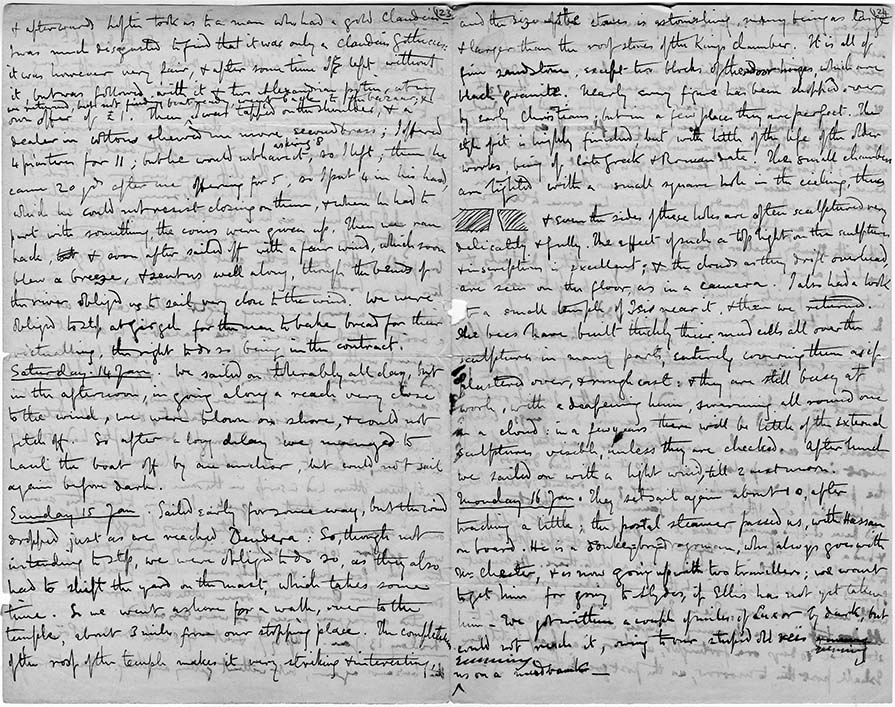 23
& afterwards Loftie took us to a man who had a gold Claudius;
I was much disgusted to find that it was only a Claudius Gothicus;
it was however very fair, & after some time off left without
it, but was followed with it & two Alexandrian
our offer of £1. Then I was tapped on the shoulder, & a
dealer in cottons shewed me more second brass; I offered
4 piastres for 11; but he would not have it, asking 8, so I left, then he
came 20 yds after me offering for 5. so I put 4 in his hand
which he could not resist closing on them, & when he had to
part with something the coins were given up. Then we ran
back, & soon after sailed off with a fair wind, which soon
blew a breeze, & sent us well along, though the bends of
the river obliged us to sail very close to the wind. We were
obliged to stop at Girgeh for the men to bake bread for their
victualling, the right to do so being in the contract.
Saturday. 14 Jan. We sailed on tolerably all day, but
in the afternoon, in going along a reach very close
to the wind, we were blown on shore, & could not
get off. So after a long delay we managed to
haul the boat off by an anchor, but could not sail
again before dark.
Sunday 15 Jan. Sailed early for some way, but the wind
dropped just as we reached Dendera: So, though not
intending to stop, we were obliged to do so, as they also
had to shift the yard on the mast, which takes some
time. So we went ashore for a walk, over to the
temple, about 3 miles from our stopping place. The completeness
of the roof of the temple makes it very striking & interesting;
24
and the size of the stones is astonishing, many being as large
& larger than the roof stones of the Kings chamber. It is all of
fine sandstone, except two blocks of the door hinges, which were
black granite. Nearly every figure has been chopped over
by early Christians, but in a few places they are perfect. The
style of it is highly finished, but with little of the life of the older
works being of late Greek & Roman date. The small chambers
are lighted with a small square hole in the ceiling, thus
& even the sides of these holes are often sculptured very
delicately & fully. The effect of such a top light on the sculptures
& inscriptions is excellent; & the clouds as they drift overhead
are seen on the floor, as in a camera. I also had a look
at a small temple of Isis near it, & then we returned.
The bees have built thickly their mud cells all over the
sculptures in many parts, entirely covering them as if
plastered over, & rough cast: & they are still busy at
work, with a deafening hum, swarming all round one
in a cloud: in a few years there will be little of the external
sculptures visible, unless they are checked. After lunch
we sailed on with a light wind, till 2 next morn.
Monday 16 Jan. They set sail again about 10, after
tracking a little; the postal steamer passed us, with Hassan
on board. He is a donkeyboy dragoman, who always goes with
Mr Chester, & is now going up with two travellers; we want
to get him for going to Abydos, if Ellis has not yet taken
him. We got within a couple of miles of Luxor by dark, but
could not reach it, owing to our stupid old reis
running
us on a mudbank